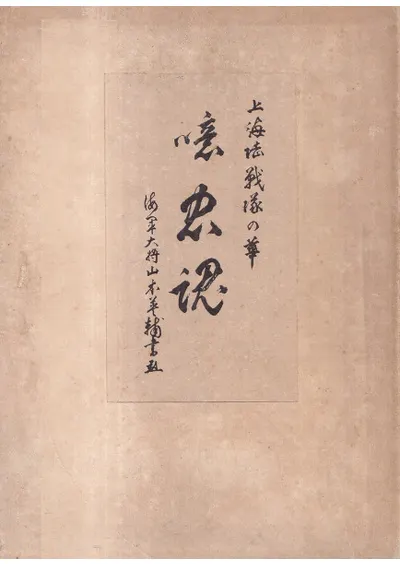 上海陸戦隊の華
噫忠魂
海軍大将山本英輔書